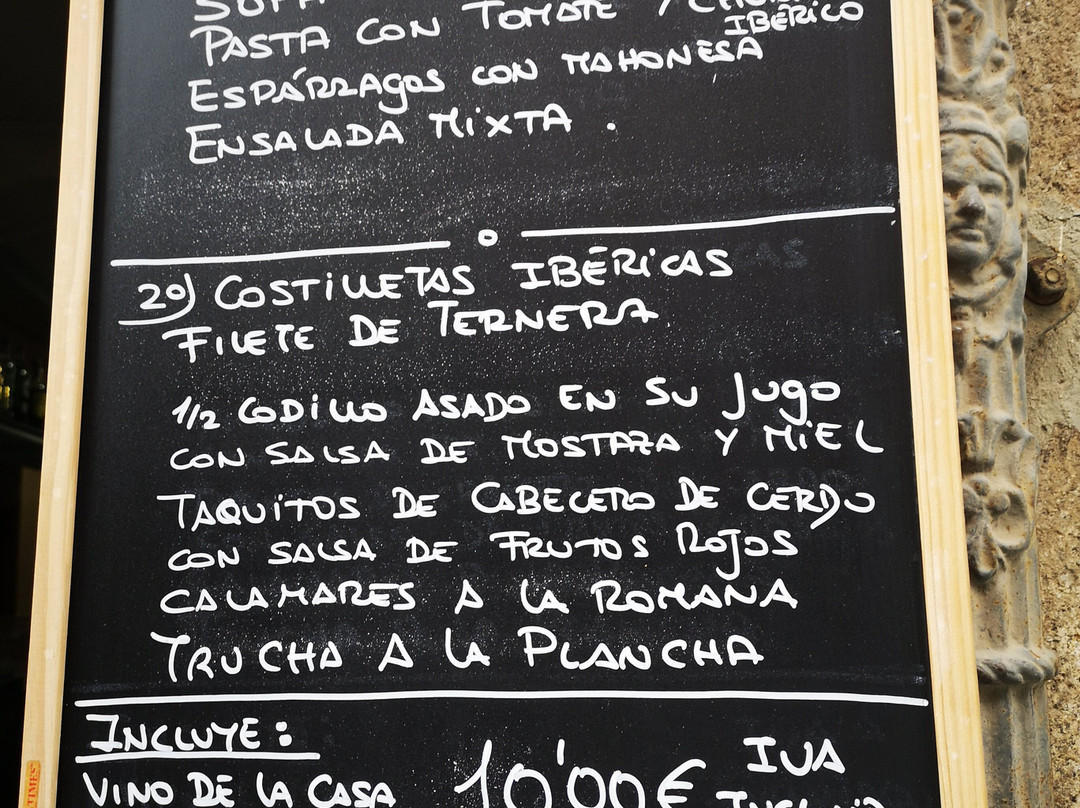 PASTA CON TOMATE /
IBÉRICO
ESPÁRRAGOS CON MAHONESA
ENSALADA MIXTA .
2º) COSTILLETAS IBÉRICAS
FILETE DE TERNERA
1/2 CODILLO ASADO EN SU JUGO
CON SALSA DE MOSTAZA Y MIEL
TAQUITOS DE CABECERO DE CERDO
CON SALSA DE FRUTOS ROJOS
CALAMARES A LA ROMANA
TRUCHA A LA PLANCHA
INCLUYE:
VINO DE LA CASA
10'00€
IVA
TIMES